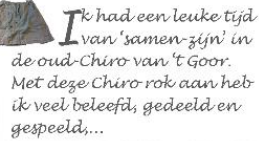 Ik had een leuke tijd
van ‘samen-zijn’ in
de oud-Chiro van ‘t Goor.
Met deze Chiro rok aan heb
ik veel beleefd, gedeeld en
gespeeld,...